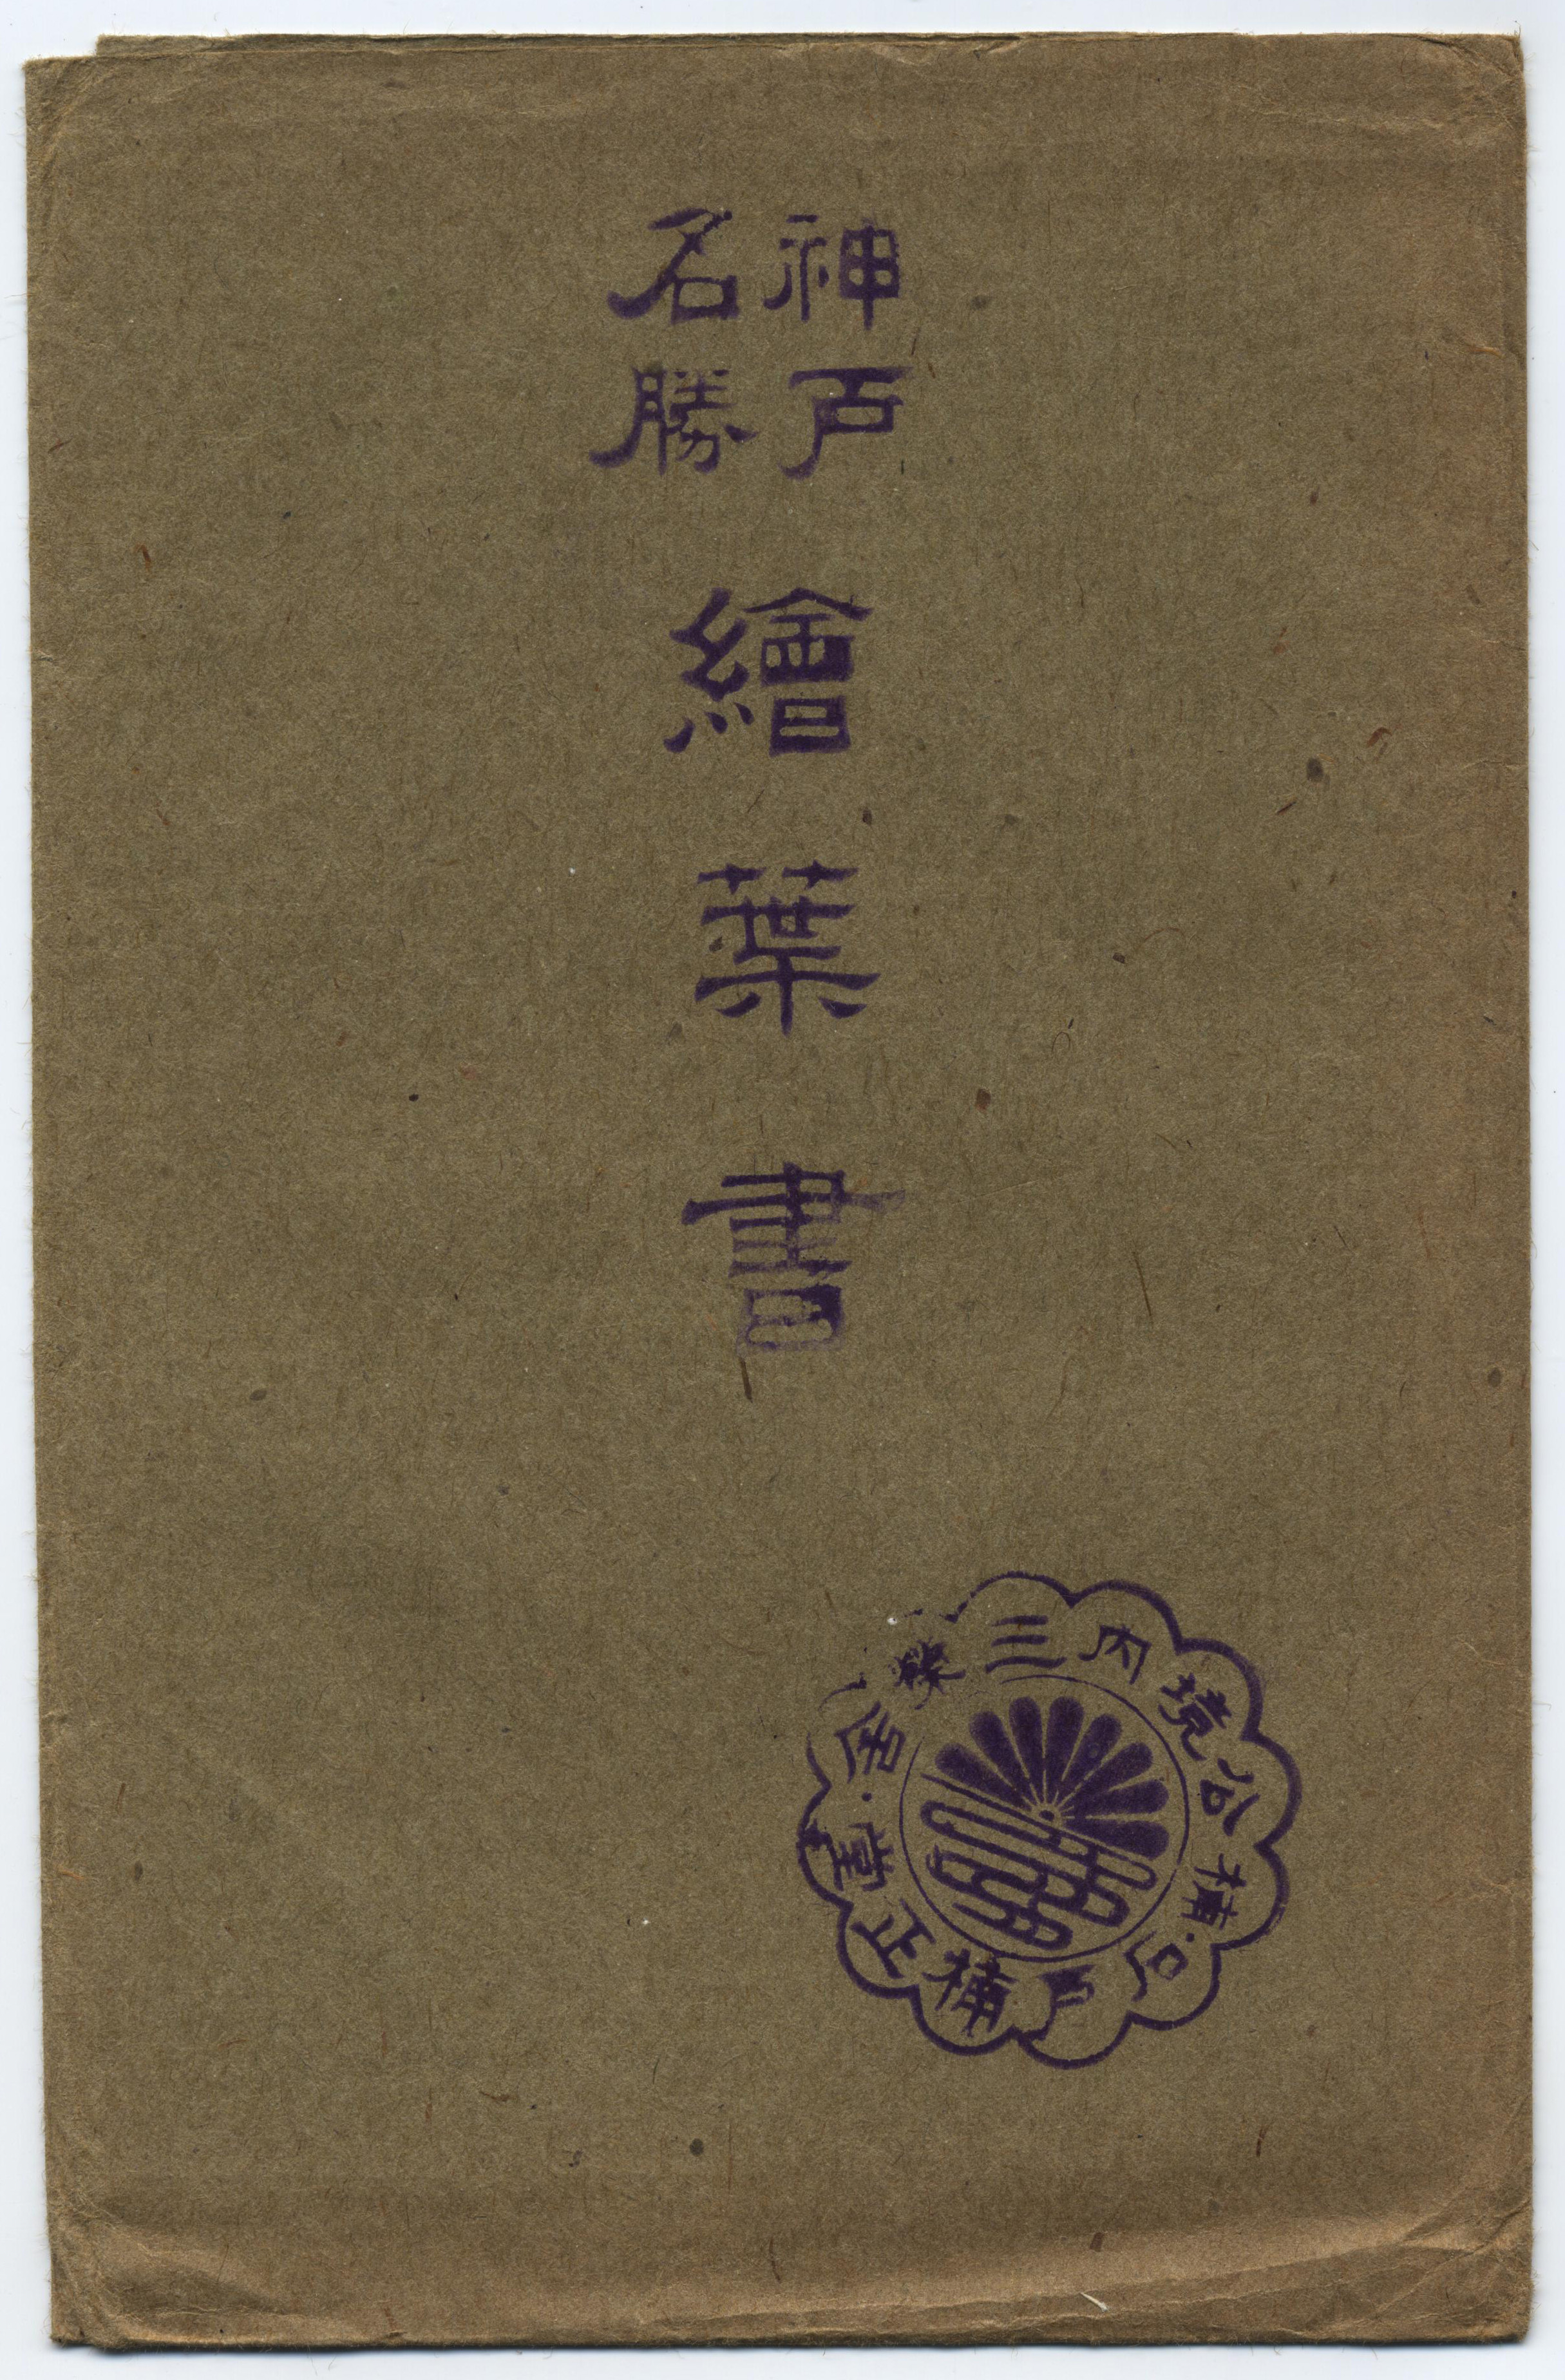 神戸
名勝
繪葉書
楠公境内三
楠正堂